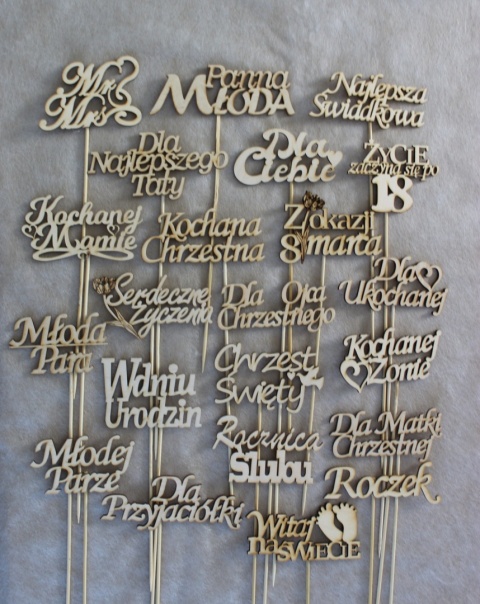 Mr
Mrs
Panna
MŁODA
Najlepsza
Świadkowa
Dla
Najlepszego
Taty
Dla
Ciebie
ŻYCIE
zaczyna się po
18
Kochanej
Mamie
Kochana
Chrzestna
Z okazji
8 marca
Dla
Ukochanej
Serdeczne
Życzenia
Dla Ojca
Chrzestnego
Młoda
Para
Wdniu
Urodzin
Chrzest
Święty
Kochanej
Żonie
Młodej
Parze
Rocznica
Ślubu
Dla Matki
Chrzestnej
Roczek
Dla
Przyjaciółki
Witaj
na ŚWIECIE